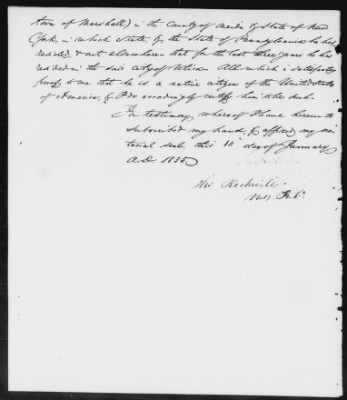 town of Marshall) in the County of Oneida & State of New
York, in which State, & the State of Pennsylvania he has
resided & not elsewhere that for the last three years he has
resided in the said city of Utica All which is satisfactory
proof to me that he is a native citizen of the United States
of America, & I do accordingly certify him to be such.
In testimony whereof I have hereunto
subscribed my hand, & affixed my no-
tarial seal this 12 day of January
A.D. 1835